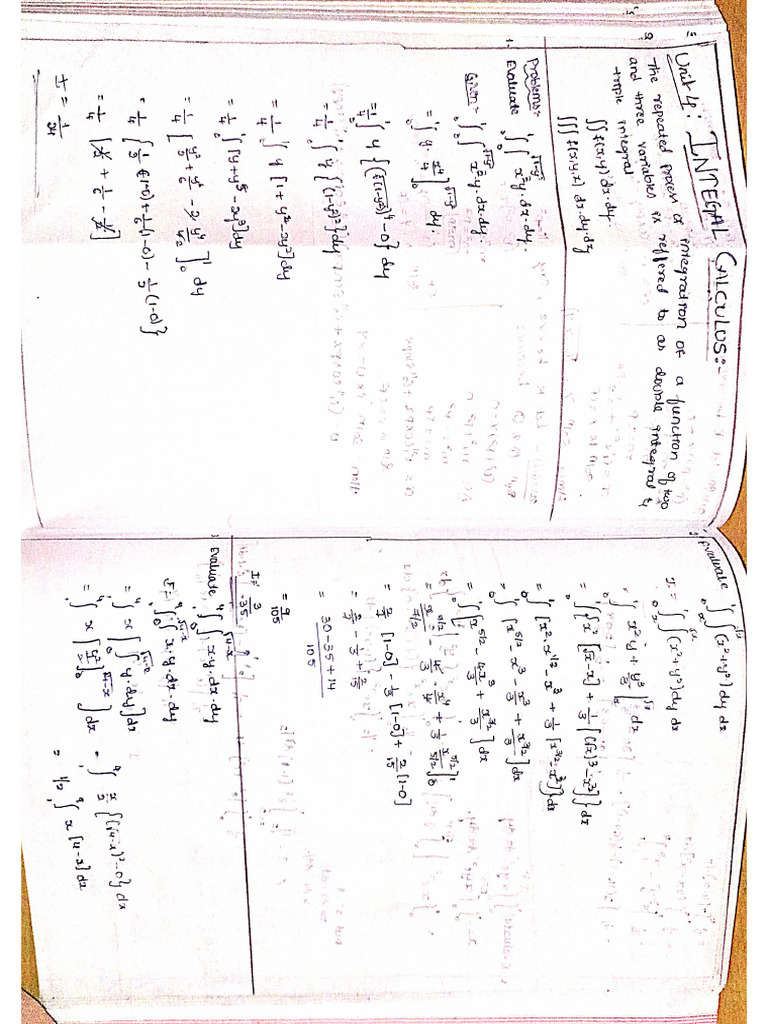 Unit 4: INTEGAL CALCULUS:-
The repeated process of integration of a function of two
and three variables is reffered to as double integral &
triple integral
∫∫ f(x,y) dx.dy.
∫∫∫ f(x,y,z) dx.dy.dz
Problems:-
1. Evaluate ∫₀¹ ∫₀^√(1-y²) x³y.dx.dy.
Given:- ∫₀¹ ∫₀^√(1-y²) x³y.dx.dy.
= ∫₀¹ y x⁴/4 ]₀^√(1-y²) dy
= 1/4 ∫₀¹ y { (√(1-y²))⁴ - 0 } dy
= 1/4 ∫₀¹ y { (1-y²)² } dy
= 1/4 ∫₀¹ y [1 + y⁴ - 2y²] dy
= 1/4 ∫₀¹ [y + y⁵ - 2y³] dy
= 1/4 [ y²/2 + y⁶/6 - 2 y⁴/4₂ ]₀¹ dy
= 1/4 { 1/2 (1-0) + 1/6 (1-0) - 1/2 (1-0) }
= 1/4 [ 1/2 + 1/6 - 1/2 ]
I = 1/24
Evaluate ∫₀¹ ∫ₓ^√x (x²+y²) dy dx
I = ∫₀¹ ∫ₓ^√x (x²+y²) dy dx
= ∫₀¹ x²y + y³/3 ]ₓ^√x dx
= ∫₀¹ { x² [√x - x] + 1/3 [(√x)³ - x³] } dx
= ∫₀¹ { [x².x^1/2 - x³ + 1/3 [x^3/2 - x³] } dx
= ∫₀¹ [ x^5/2 - x³ - x³/3 + x^3/2/3 ] dx
= ∫₀¹ [ x^5/2 - 4x³/3 + x^3/2/3 ] dx
= x^7/2/7/2 - 4/3 . x⁴/4 + 1/3 x^5/2/5/2 ]₀¹
= 2/7 [1-0] - 1/3 [1-0] + 2/15 [1-0]
= 2/7 - 1/3 + 2/15
= 30-35+14 / 105
= 9/105
I = 3/35
Evaluate ∫₁⁴ ∫₀^√(4-x) x.y.dx.dy
I = ∫₁⁴ ∫₀^√(4-x) x.y.dx.dy
= ∫₁⁴ x [ ∫₀^√(4-x) y.dy ] dx
= ∫₁⁴ x [ y²/2 ]₀^√(4-x) ] dx = ∫₁⁴ x/2 { (√4-x)² - 0 } dx
= 1/2 ∫₁⁴ x [4-x] dx